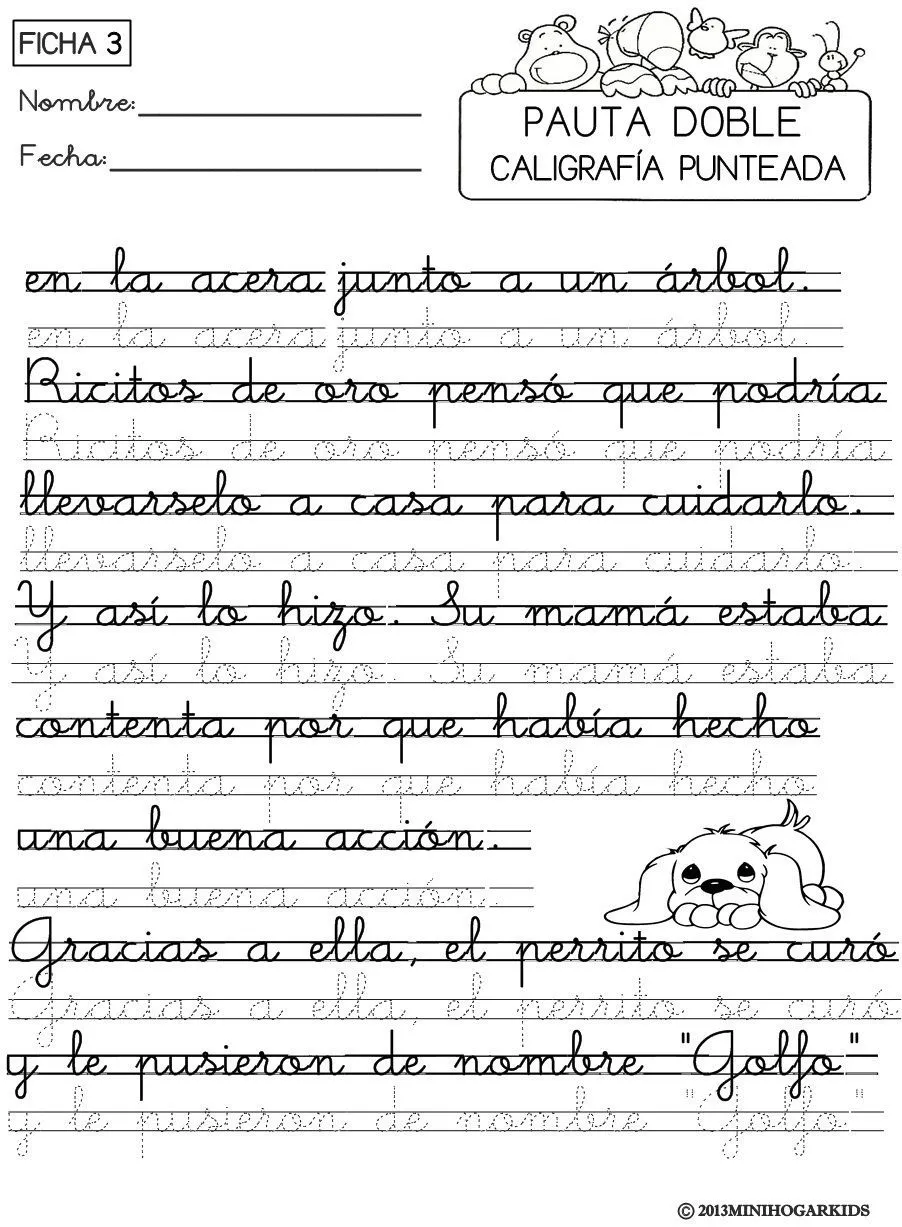 FICHA 3
Nombre:
Fecha:
PAUTA DOBLE
CALIGRAFÍA PUNTEADA
en la acera junto a un árbol.
en la acera junto a un árbol.
Ricitos de oro pensó que podría
Ricitos de oro pensó que podría
llevarselo a casa para cuidarlo.
llevarselo a casa para cuidarlo.
Y así lo hizo. Su mamá estaba
Y así lo hizo. Su mamá estaba
contenta por que había hecho
contenta por que había hecho
una buena acción.
una buena acción.
Gracias a ella, el perrito se curó
Gracias a ella, el perrito se curó
y le pusieron de nombre "Golfo"
y le pusieron de nombre "Golfo"
© 2013MINIHOGARKIDS